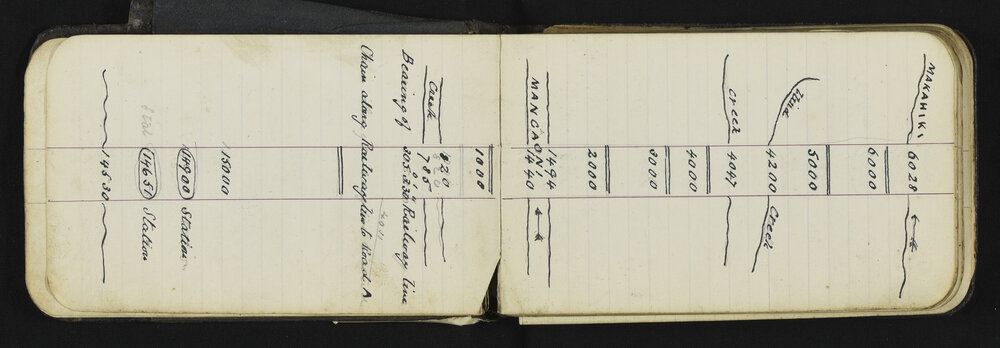 MAKAHIKI 6028
6000
5000
4200 Creek
creek 4047
4000
3000
2000
1494
MANGAONI 1440
1000
820
Creek 785
Bearing of 305.23 Railway line
Chain along Railway line to Road
15000
14900 Station
14651 Station
14530